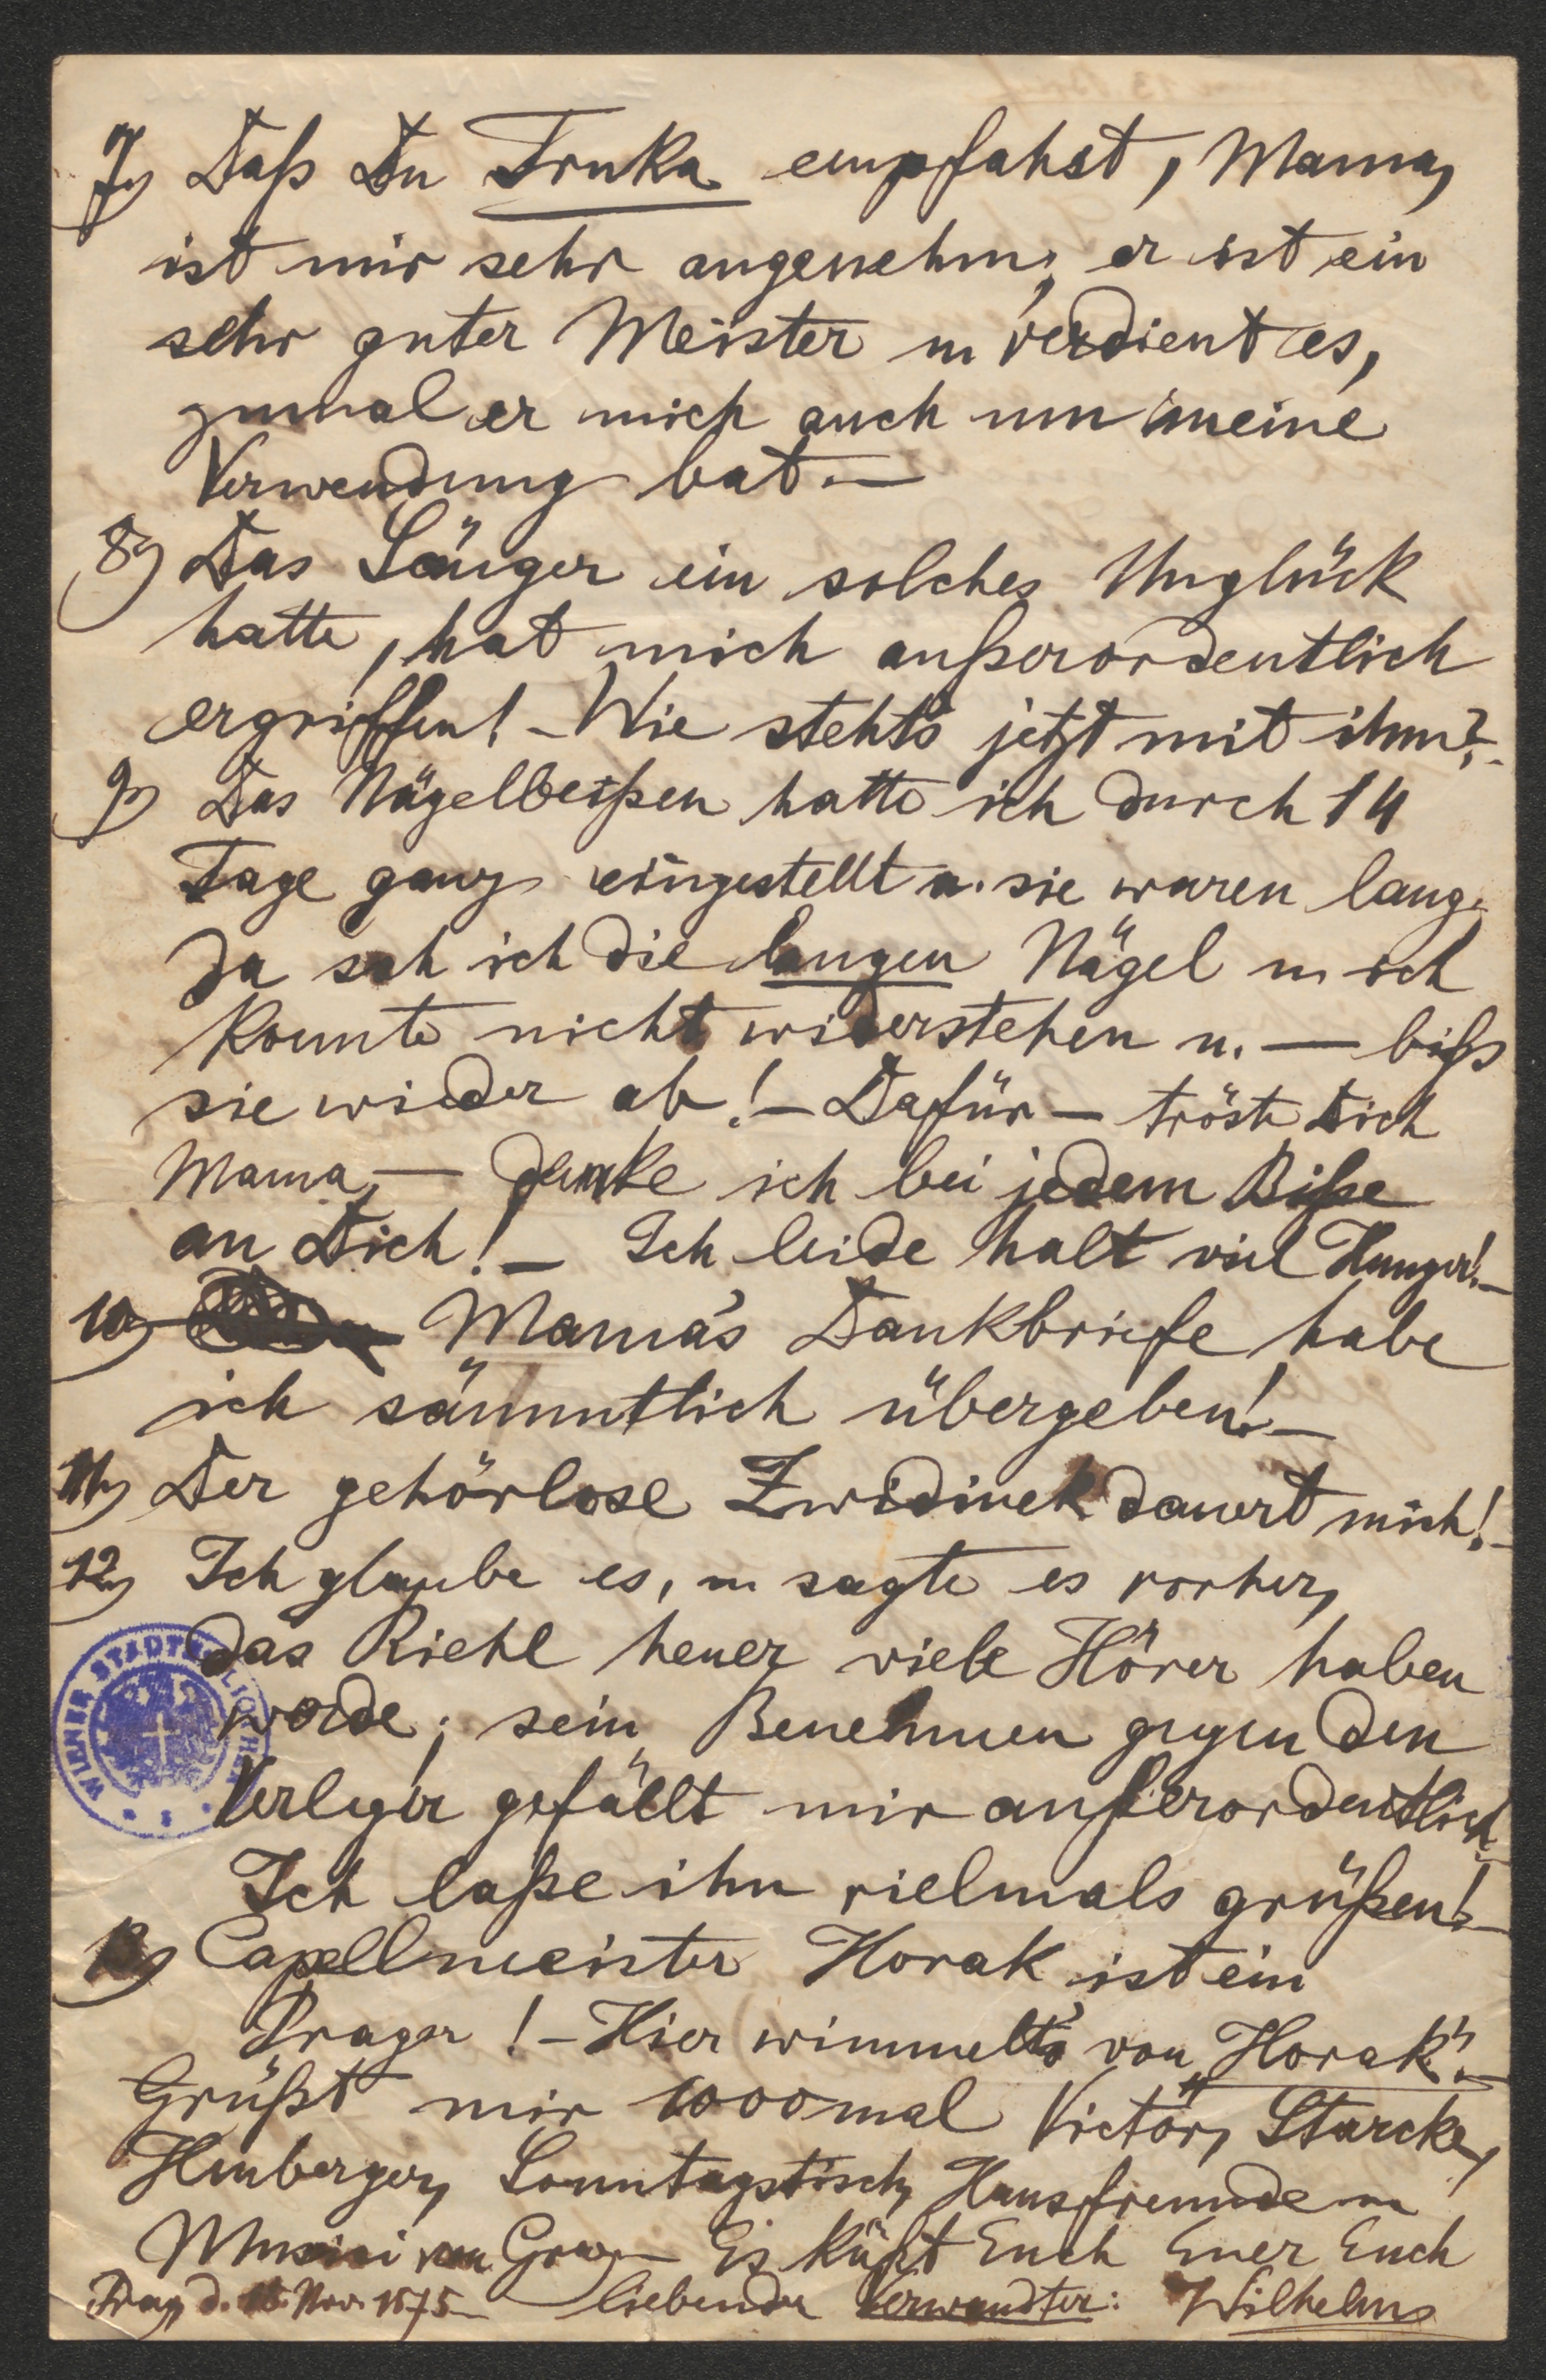 7) Daß Du Truka empfahst, Mama,
ist mir sehr angenehm; er ist ein
sehr guter Meister u verdient es,
zumal er mich auch um meine
Verwendung bat. —
8) Das Sänger ein solches Unglück
hatte, hat mich außerordentlich
ergriffen! – Wie steht's jetzt mit ihm? –
9) Das Nägelbeißen hatte ich durch 14
Tage ganz eingestellt u. sie waren lang.
Da sah ich die langen Nägel u ich
konnte nicht widerstehen u. — biß
sie wieder ab! – Dafür – tröste Dich
Mama, — denke ich bei jedem Biße
an Dich! – Ich leide halt viel Hunger! –
10) Mama's Dankbriefe habe
ich sämmtlich übergeben! –
11) Der gehörlose Zwidinek dauert mich! –
12) Ich glaube es, u sagte es vorher,
das Riehl heuer viele Hörer haben
werde; sein Benehmen gegen den
Verleger gefällt mir außerordentlich
Ich laße ihn vielmals grüßen! –
13) Capellmeister Horak ist ein
Prager! – Hier wimmelt's von „Horak". –
Grüßt mir 1000mal Victor, Starcke,
Humberger, Sonntagstisch, Hausfreunde u
Musici von Graz – Es küßt Euch Euer Euch
Prag d. Nov. 1875 – liebender Verwandter: Wilhelm
WIENER STADTBIBLIOTHEK